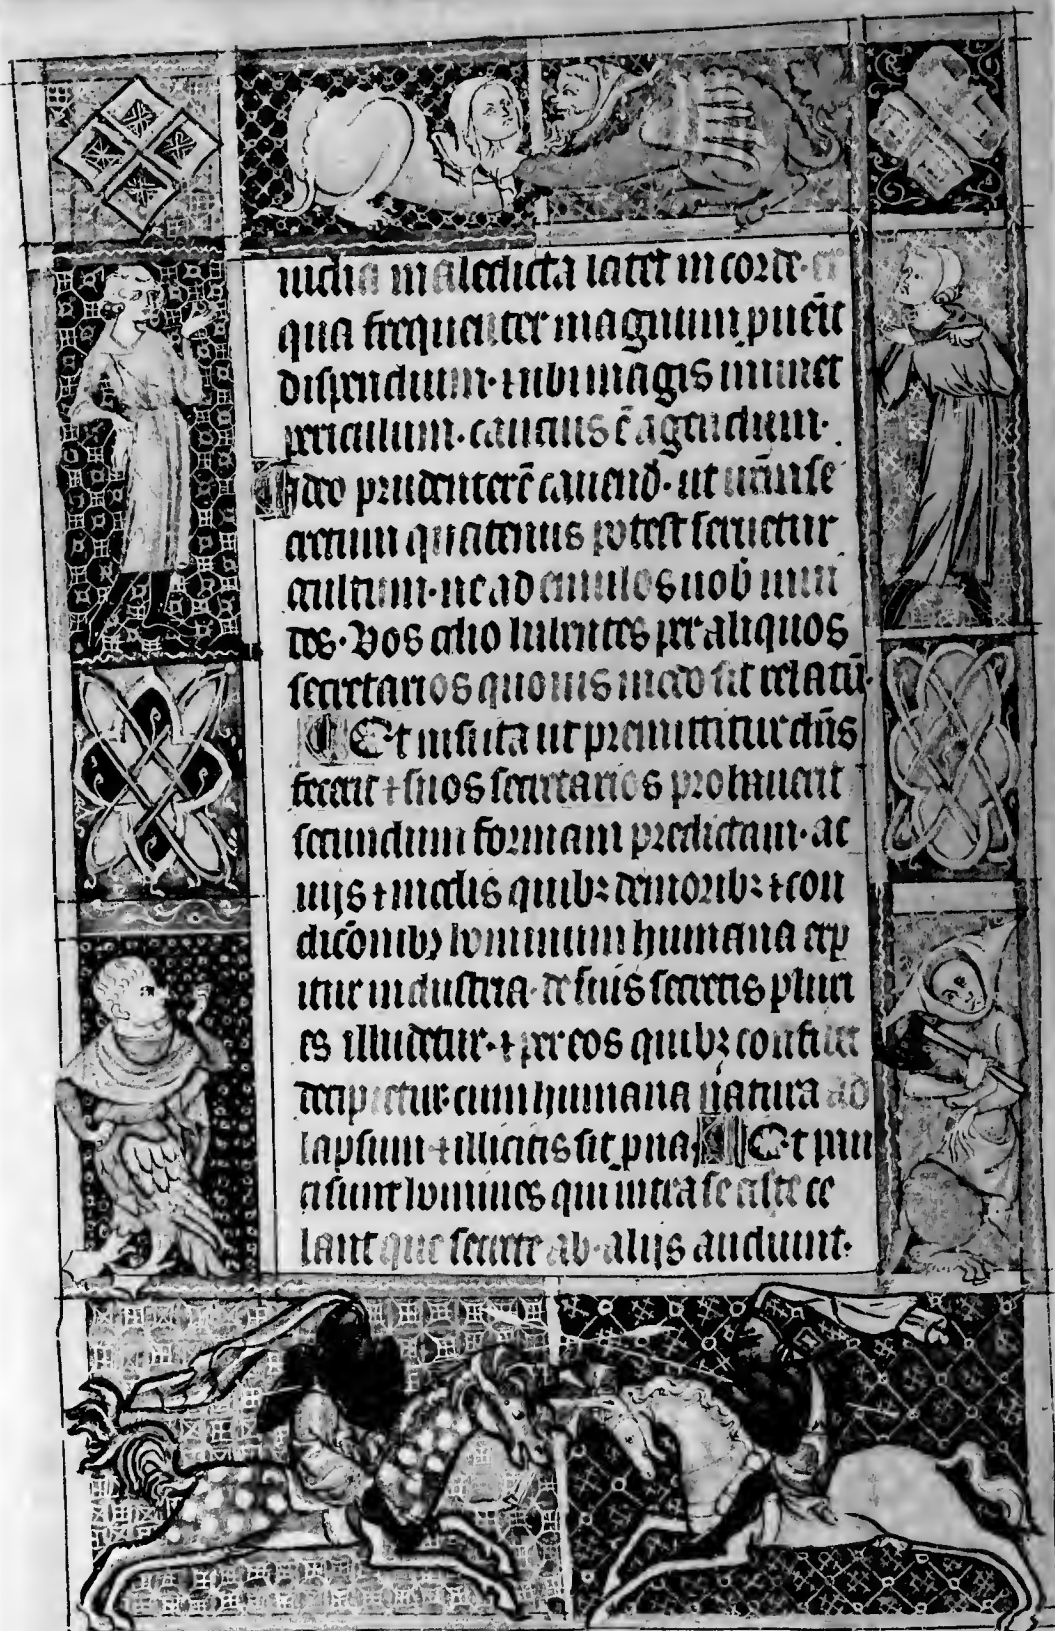 uidia maledicta latet in corde· ex
qua frequenter magnum puēit
dispendium· ⁊ ubi magis iminet
periculum· caucius ē agendum·
Ideo prudenter ē cauend̄· ut urm̄ se
cretum quatenus potest seruetur
occultum· ne ad emulos uob̄ inui
des· Vos odio habentes per aliquos
secretarios quouis modo sit relatū·
Et nisi ita ut premittitur dn̄s
fecerit ⁊ suos secretarios probauerit
secundum formam predictam· ac
uijs ⁊ modis quibꝫ de moribꝫ ⁊ con
dic̄onibꝫ hominum humana exp
itur industria· de suis secretis pluri
es illudetur· ⁊ per eos quibꝫ confidit
decipietur cum humana natura ad
lapsum ⁊ illicitis sit pna· Et pau
ci sunt homines qui intra se caste ce
lant que secrete ab alijs audiunt·